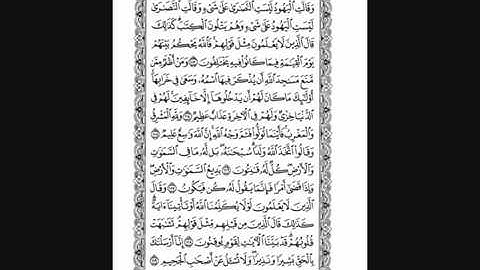 وَقَالَتِ الْيَهُودُ لَيْسَتِ النَّصَارَىٰ عَلَىٰ شَيْءٍ وَقَالَتِ النَّصَارَىٰ
لَيْسَتِ الْيَهُودُ عَلَىٰ شَيْءٍ وَهُمْ يَتْلُونَ الْكِتَابَ كَذَٰلِكَ
قَالَ الَّذِينَ لَا يَعْلَمُونَ مِثْلَ قَوْلِهِمْ فَاللَّهُ يَحْكُمُ بَيْنَهُمْ
يَوْمَ الْقِيَامَةِ فِيمَا كَانُوا فِيهِ يَخْتَلِفُونَ ١١٣ وَمَنْ أَظْلَمُ مِمَّن
مَّنَعَ مَسَاجِدَ اللَّهِ أَن يُذْكَرَ فِيهَا اسْمُهُ وَسَعَىٰ فِي خَرَابِهَا
أُولَٰئِكَ مَا كَانَ لَهُمْ أَن يَدْخُلُوهَا إِلَّا خَائِفِينَ لَهُمْ فِي
الدُّنْيَا خِزْيٌ وَلَهُمْ فِي الْآخِرَةِ عَذَابٌ عَظِيمٌ ١١٤ وَلِلَّهِ الْمَشْرِقُ
وَالْمَغْرِبُ فَأَيْنَمَا تُوَلُّوا فَثَمَّ وَجْهُ اللَّهِ إِنَّ اللَّهَ وَاسِعٌ عَلِيمٌ ١١٥
وَقَالُوا اتَّخَذَ اللَّهُ وَلَدًا سُبْحَانَهُ بَل لَّهُ مَا فِي السَّمَاوَاتِ
وَالْأَرْضِ كُلٌّ لَّهُ قَانِتُونَ ١١٦ بَدِيعُ السَّمَاوَاتِ وَالْأَرْضِ
وَإِذَا قَضَىٰ أَمْرًا فَإِنَّمَا يَقُولُ لَهُ كُن فَيَكُونُ ١١٧ وَقَالَ
الَّذِينَ لَا يَعْلَمُونَ لَوْلَا يُكَلِّمُنَا اللَّهُ أَوْ تَأْتِينَا آيَةٌ
كَذَٰلِكَ قَالَ الَّذِينَ مِن قَبْلِهِم مِّثْلَ قَوْلِهِمْ تَشَابَهَتْ
قُلُوبُهُمْ قَدْ بَيَّنَّا الْآيَاتِ لِقَوْمٍ يُوقِنُونَ ١١٨ إِنَّا أَرْسَلْنَاكَ
بِالْحَقِّ بَشِيرًا وَنَذِيرًا وَلَا تُسْأَلُ عَنْ أَصْحَابِ الْجَحِيمِ ١١٩